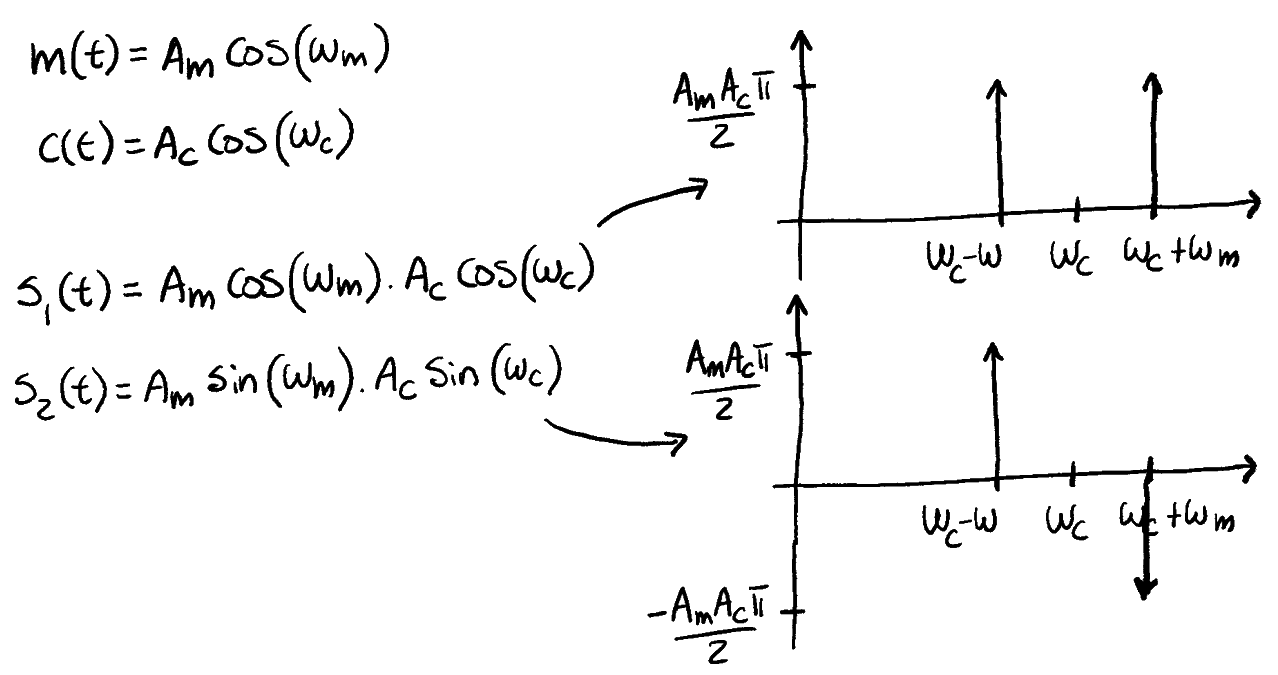 m(t) = Aₘ cos(ωₘ)
c(t) = A_c cos(ω_c)
s₁(t) = Aₘ cos(ωₘ) . A_c cos(ω_c)
s₂(t) = Aₘ sin(ωₘ) . A_c sin(ω_c)
AₘA_cπ
2
ω_c-ω ω_c ω_c+ωₘ
AₘA_cπ
2
ω_c-ω ω_c ω_c+ωₘ
-AₘA_cπ
2